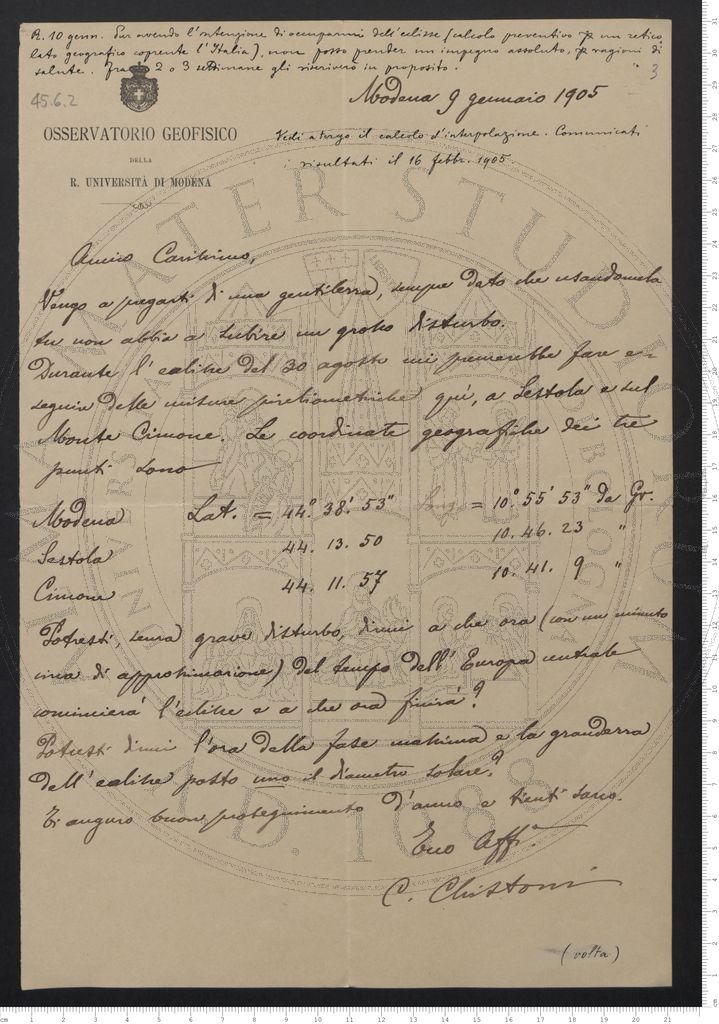 R. 10 genn. Pur avendo l'intenzione di occuparmi dell'eclisse (calcolo preventivo per un retico
lato geografico coprente l'Italia), non posso prender un impegno assoluto, per ragioni di
salute. Fra 2 o 3 settimane gli riscriverò in proposito.
3
45.6.2
Modena 9 gennaio 1905
OSSERVATORIO GEOFISICO
DELLA
R. UNIVERSITÀ DI MODENA
Vedi a tergo il calcolo d'interpolazione. Comunicati
i risultati il 16 febbr. 1905.
Amico Carissimo,
Vengo a pregarti di una gentilezza, sempre dato che usandomela
tu non abbia a subire un grosso disturbo.
Durante l'eclisse del 30 agosto mi premerebbe fare e-
seguire delle misure pireliometriche quì, a Sestola e sul
Monte Cimone. Le coordinate geografiche dei tre
punti sono
Modena Lat. = 44.° 38.' 53" Long. = 10.° 55' 53" da Gr.
Sestola 44. 13. 50 10. 46. 23 "
Cimone 44. 11. 57 10. 41. 9 "
Potresti, senza grave disturbo, dirmi a che ora (con un minuto
circa di approssimazione) del tempo dell'Europa centrale
comincierà l'eclisse e a che ora finirà?
Potresti dirmi l'ora della fase massima e la grandezza
dell'eclisse posto uno il diametro solare?
Ti auguro buon proseguimento d'anno e tienti sano.
Tuo Aff.
C. Chistoni
(volta)
ALMA MATER STUDIORUM
A.D. 1088